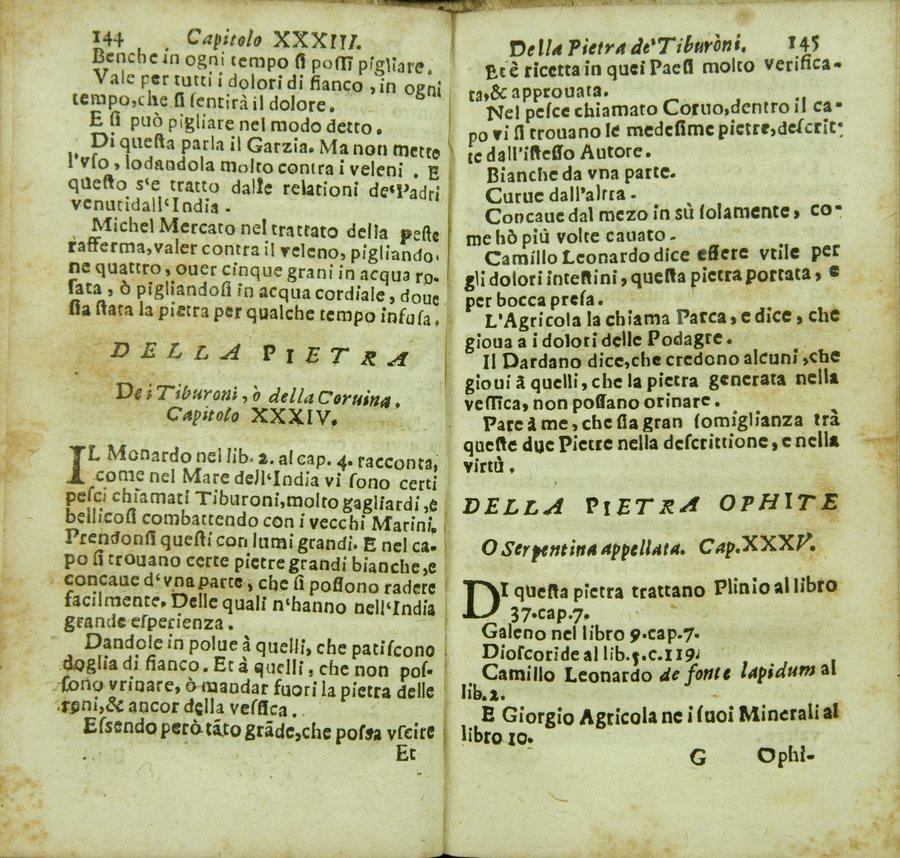 144 Capitolo XXXIII.
Benche in ogni tempo ſi poſſi pigliare.
Vale per tutti i dolori di fianco, in ogni
tempo, che ſi ſentirà il dolore.
E ſi può pigliare nel modo detto.
Di queſta parla il Garzia. Ma non mette
l'vſo, lodandola molto contra i veleni. E
queſto s'e tratto dalle relationi de'Padri
venutidall'India.
Michel Mercato nel trattato della peſte
rafferma, valer contra il veleno, pigliando-
ne quattro, ouer cinque grani in acqua ro-
ſata, ò pigliandoſi in acqua cordiale, doue
ſia ſtata la pietra per qualche tempo infuſa.
DELLA PIETRA
De i Tiburoni, ò della Coruina.
Capitolo XXXIV.
IL Monardo nel lib. 2. al cap. 4. racconta,
come nel Mare dell'India vi ſono certi
peſci chiamati Tiburoni, molto gagliardi, e
bellicoſi combattendo con i vecchi Marini.
Prendonſi queſti con lumi grandi. E nel ca-
po ſi trouano certe pietre grandi bianche, e
concaue d'vna parte, che ſi poſſono radere
facilmente. Delle quali n'hanno nell'India
grande eſperienza.
Dandole in polue à quelli, che patiſcono
doglia di fianco. Et à quelli, che non poſ-
ſono vrinare, ò mandar fuori la pietra delle
reni, & ancor della veſſica.
Eſſendo però tãto grãde, che poſſa vſcire
Et
Della Pietra de'Tiburòni. 145
Et è ricetta in quei Paeſi molto verifica-
ta, & approuata.
Nel peſce chiamato Coruo, dentro il ca-
po vi ſi trouano le medeſime pietre, deſcrit-
te dall'iſteſſo Autore.
Bianche da vna parte.
Curue dall'altra.
Concaue dal mezo in sù ſolamente, co-
me hò più volte cauato.
Camillo Leonardo dice eſſere vtile per
gli dolori inteſtini, queſta pietra portata, e
per bocca preſa.
L'Agricola la chiama Parca, e dice, che
gioua a i dolori delle Podagre.
Il Dardano dice, che credono alcuni, che
gioui à quelli, che la pietra generata nella
veſſica, non poſſano orinare.
Pare à me, che ſia gran ſomiglianza trà
queſte due Pietre nella deſcrittione, e nella
virtù.
DELLA PIETRA OPHITE
O Serpentina appellata. Cap. XXXV.
DI queſta pietra trattano Plinio al libro
37. cap. 7.
Galeno nel libro 9. cap. 7.
Dioſcoride al lib. 5. c. 119.
Camillo Leonardo de fonte lapidum al
lib. 2.
E Giorgio Agricola ne i ſuoi Minerali al
libro 10.
G Ophi-